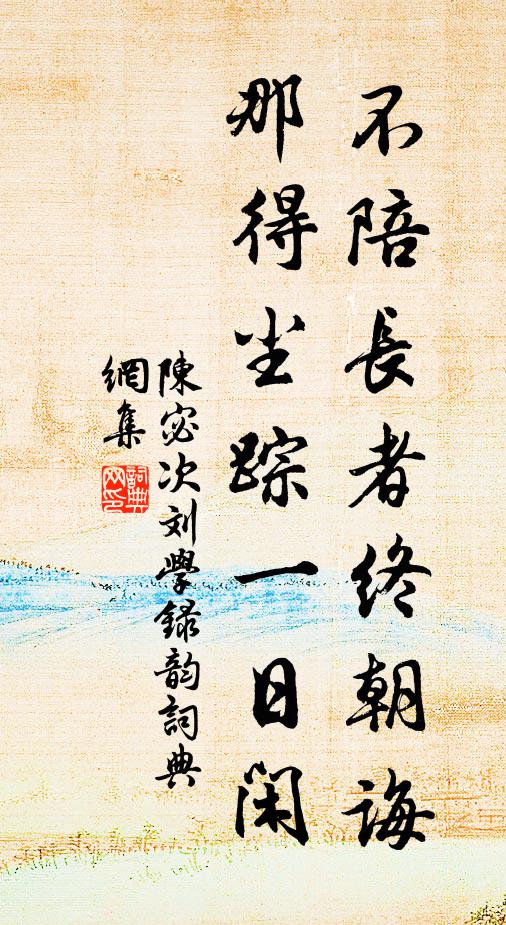 不陪長者終朝誨
那得尘踪一日闲
陳宓次刘學録韵詞典
網集
詞典网印